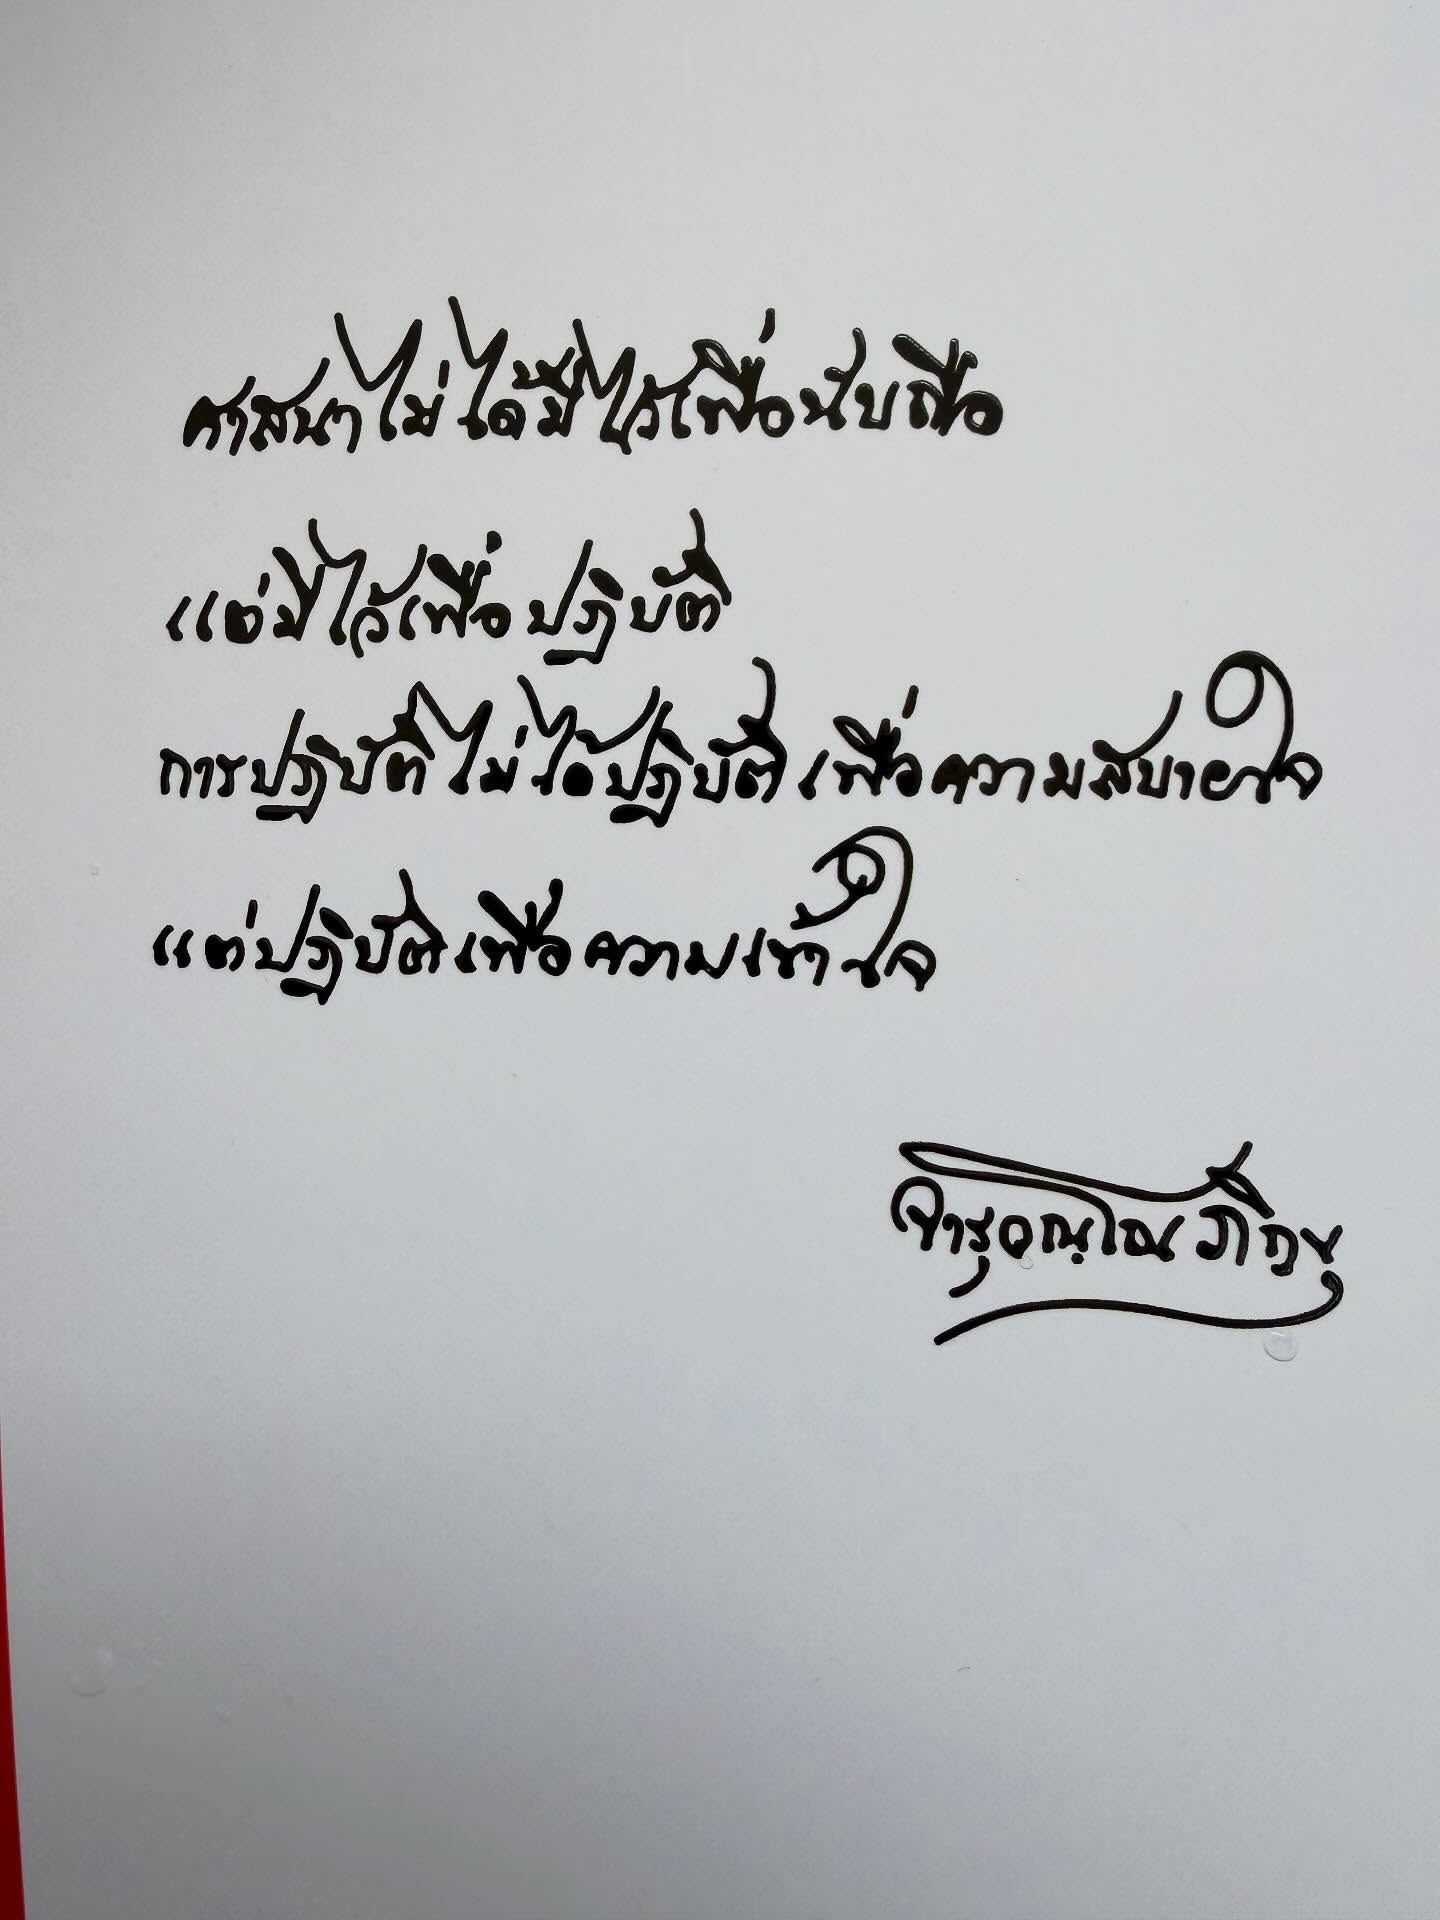 ศาสนาไม่ได้มีไว้เพื่อนับถือ
แต่มีไว้เพื่อปฏิบัติ
การปฏิบัติไม่ได้ปฏิบัติเพื่อความสบายใจ
แต่ปฏิบัติเพื่อความเข้าใจ
จารุวณฺโณ ภิกขุ